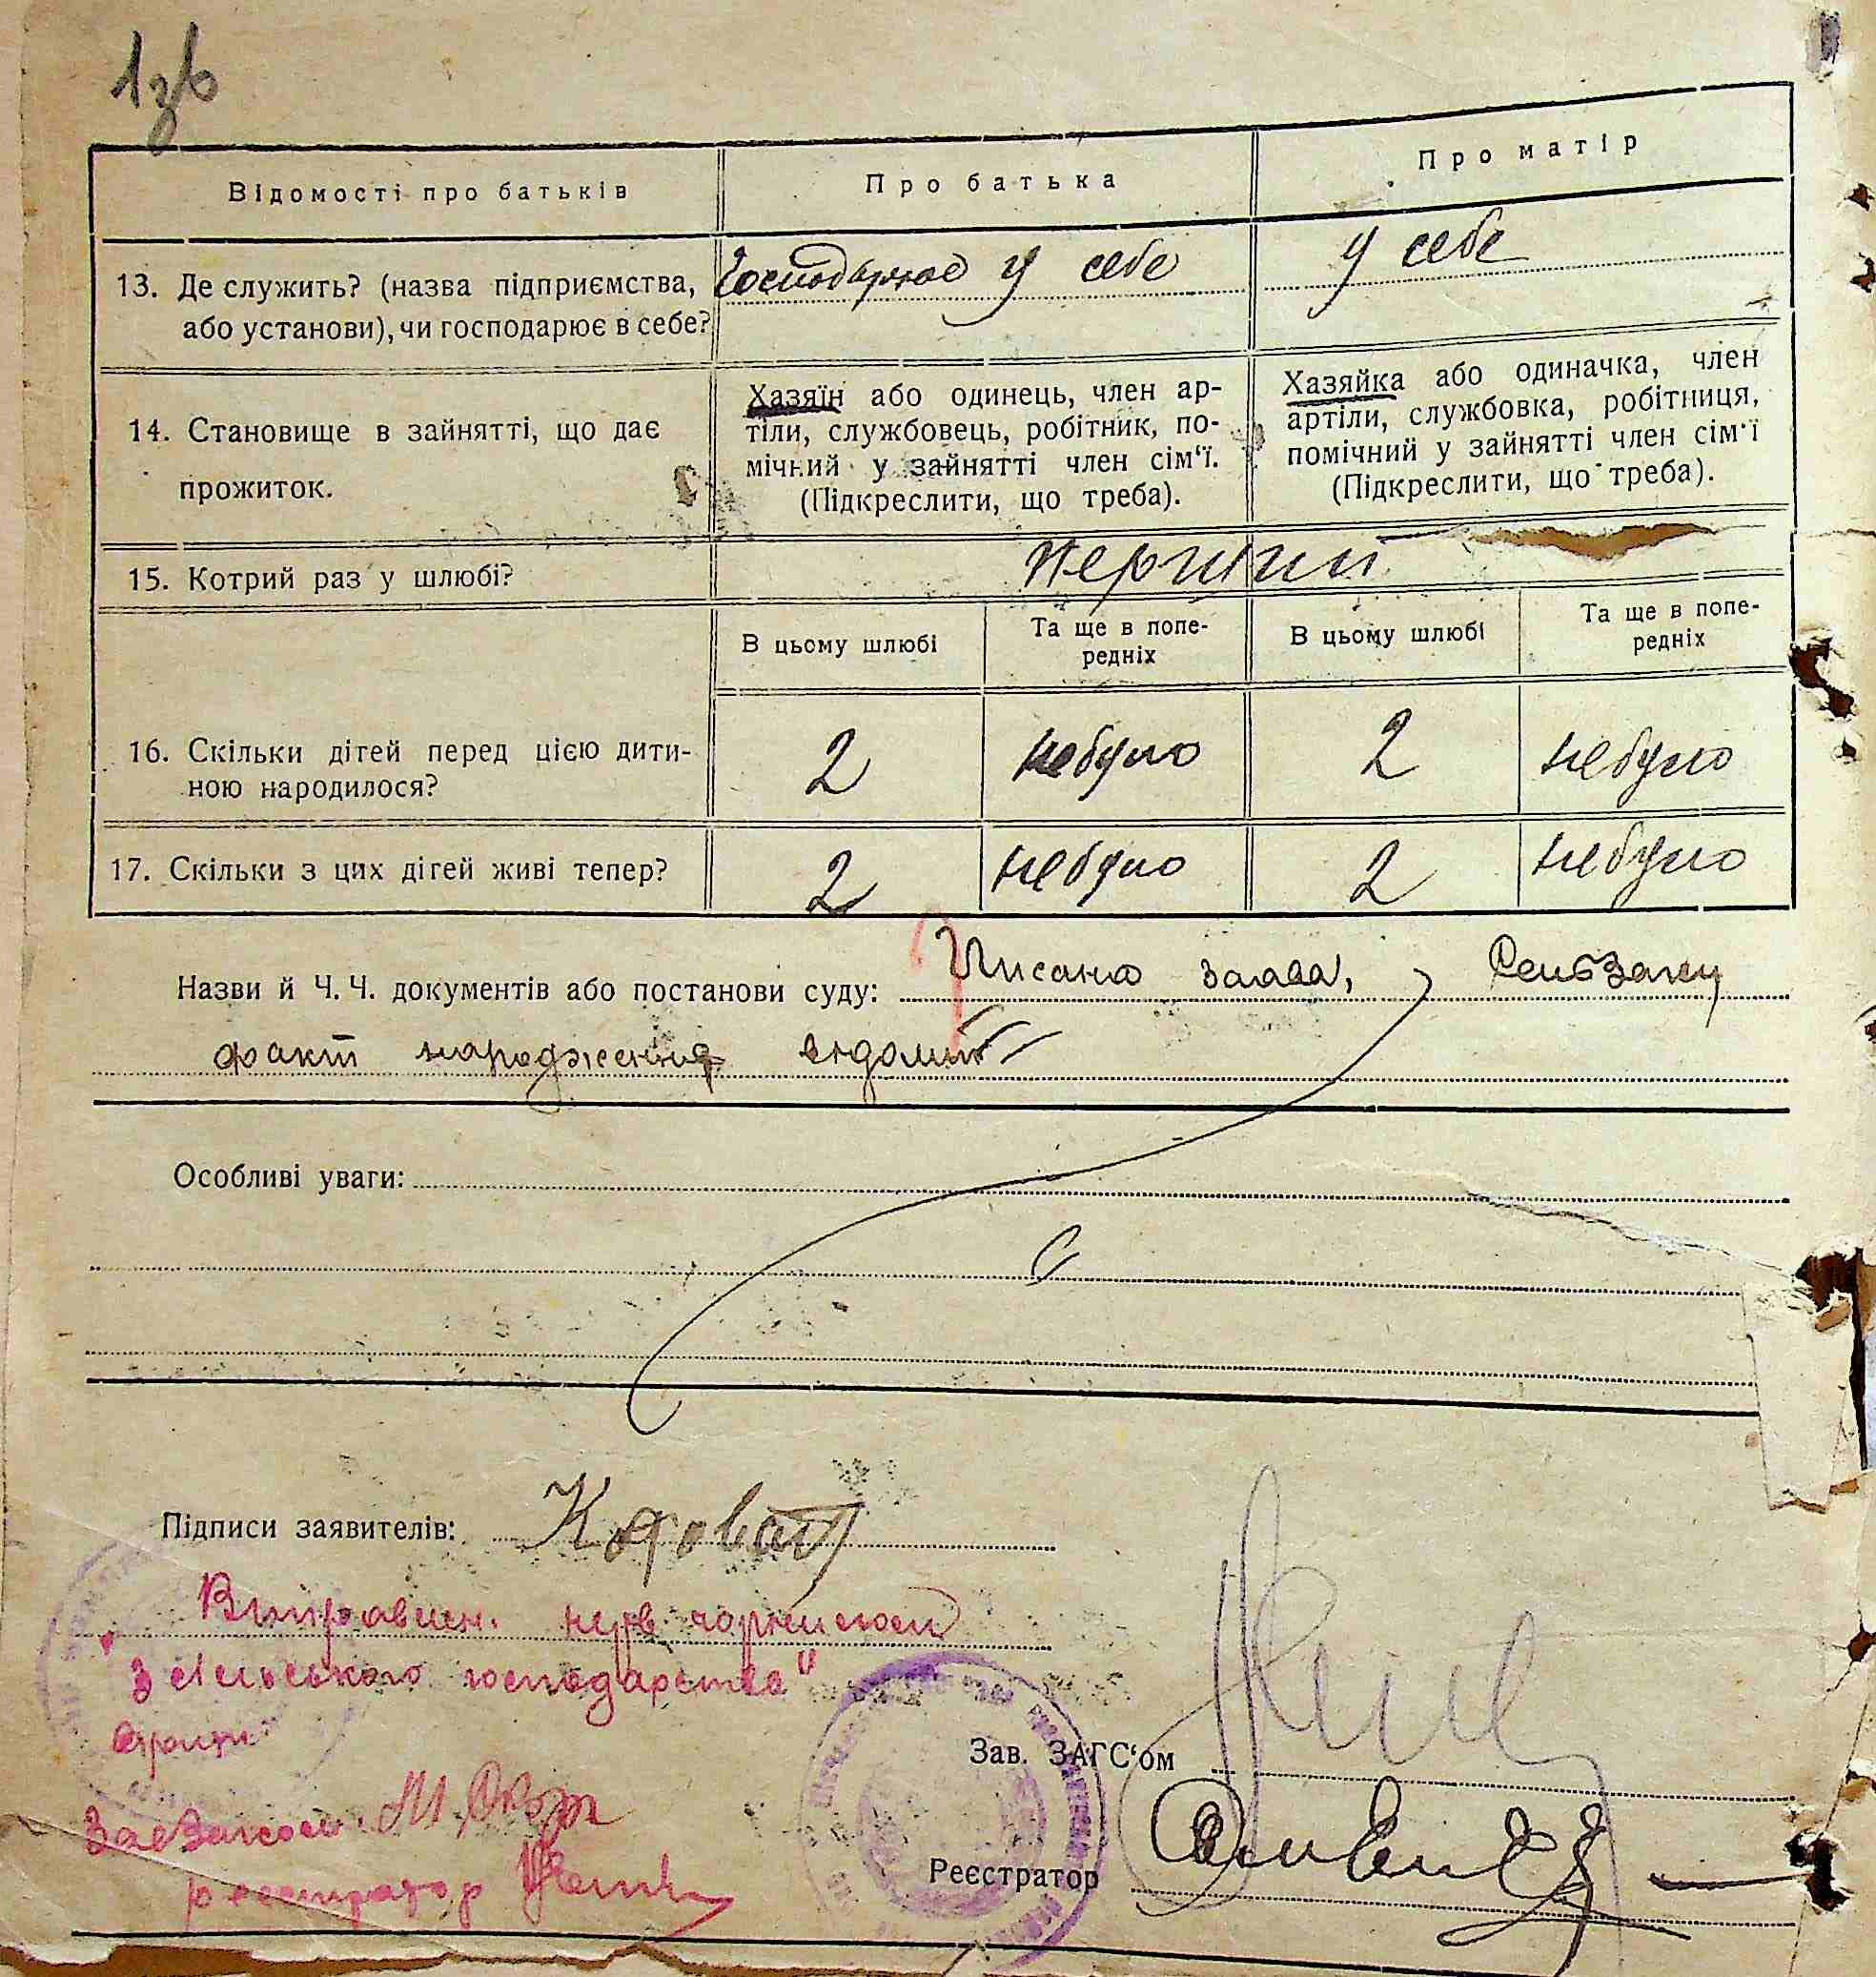 1зв
Відомості про батьків
Про батька
Про матір
13. Де служить? (назва підприємства,
або установи), чи господарює в себе?
Господарює у себе
у себе
14. Становище в зайнятті, що дає
прожиток.
Хазяїн або одинець, член ар-
тіли, службовець, робітник, по-
мічний у зайнятті член сім'ї.
(Підкреслити, що треба).
Хазяйка або одиначка, член
артіли, службовка, робітниця,
помічний у зайнятті член сім'ї
(Підкреслити, що треба).
15. Котрий раз у шлюбі?
перший
В цьому шлюбі
Та ще в попе-
редніх
В цьому шлюбі
Та ще в попе-
редніх
16. Скільки дітей перед цією дити-
ною народилося?
2 небуло 2 небуло
17. Скільки з цих дітей живі тепер?
2 небуло 2 небуло
Назви й Ч. Ч. документів або постанови суду: заява,
факт народження відомий
Особливі уваги:
Підписи заявителів:
чорнилом
"З сільського господарства"
реєстратор
Зав. ЗАГС'ом
Реєстратор